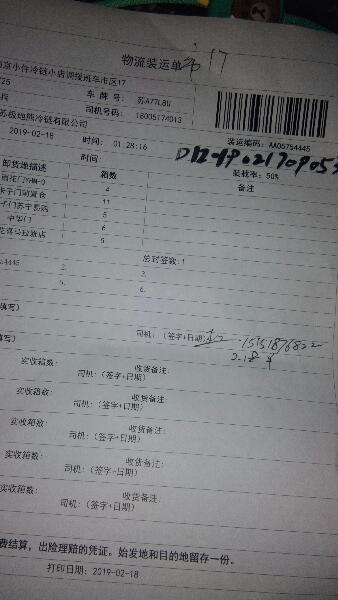 物流装运单
17
南京小件冷链小店调拨班车市区17
725 车 牌 号: 苏A77L8U
司机号码: 18005174013
苏极地熊冷链有限公司
装运编码: AA05754445
2019-02-18 时间: 01:28:16
时间: 装载率: 50%
卸货地描述 箱数 备注
4
11
5
中华门 6
5
4445 2. 3. 总封签数:1
5. 6.
填写)
司机: (签字+日期) 15151876822
2.18
填写)
实收箱数: 收货备注:
司机: (签字+日期)
实收箱数: 收货备注:
司机: (签字+日期)
实收箱数: 收货备注:
司机: (签字+日期)
实收箱数: 收货备注:
司机: (签字+日期)
实收箱数: 收货备注:
司机: (签字+日期)
费结算，出险理赔的凭证。始发地和目的地留存一份。
打印日期: 2019-02-18